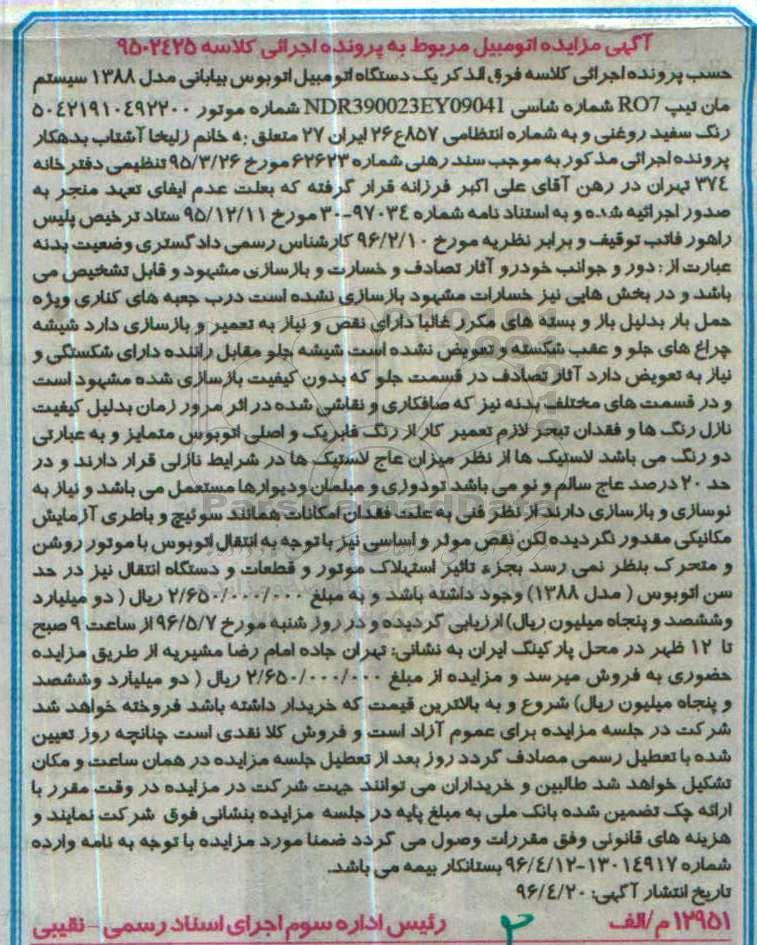 آگهی مزایده اتومبیل مربوط به پرونده اجرائی کلاسه ۹۵۰۲۴۲۵
حسب پرونده اجرائی کلاسه فوق الذکر یک دستگاه اتومبیل اتوبوس بیابانی مدل ۱۳۸۸ سیستم
مان تیپ RO7 شماره شاسی NDR390023EY09041 شماره موتور ۵۰۴۲۱۹۱۰۴۹۲۲۰۰
رنگ سفید روغنی و به شماره انتظامی ۸۵۷ع۲۶ ایران ۲۷ متعلق به خانم زلیخا آشتاب بدهکار
پرونده اجرائی مذکور به موجب سند رهنی شماره ۶۲۶۲۳ مورخ ۹۵/۳/۲۶ تنظیمی دفترخانه
۳۷۴ تهران در رهن آقای علی اکبر فرزانه قرار گرفته که بعلت عدم ایفای تعهد منجر به
صدور اجرائیه شده و به استناد نامه شماره ۹۷۰۳۴-۳۰ مورخ ۹۵/۱۲/۱۱ ستاد ترخیص پلیس
راهور فاتب توقیف و برابر نظریه مورخ ۹۶/۲/۱۰ کارشناس رسمی دادگستری وضعیت بدنه
عبارت از: دور و جوانب خودرو آثار تصادف و خسارت و بازسازی مشهود و قابل تشخیص می
باشد و در بخش هایی نیز خسارات مشهود بازسازی نشده است درب جعبه های کناری ویژه
حمل بار بدلیل باز و بسته های مکرر غالبا دارای نقص و نیاز به تعمیر و بازسازی دارد شیشه
چراغ های جلو و عقب شکسته و تعویض نشده است شیشه جلو مقابل راننده دارای شکستگی و
نیاز به تعویض دارد آثار تصادف در قسمت جلو که بدون کیفیت بازسازی شده مشهود است
و در قسمت های مختلف بدنه نیز که صافکاری و نقاشی شده در اثر مرور زمان بدلیل کیفیت
نازل رنگ ها و فقدان تبحر لازم تعمیر کار از رنگ فابریک و اصلی اتوبوس متمایز و به عبارتی
دو رنگ می باشد لاستیک ها از نظر میزان عاج لاستیک ها در شرایط نازلی قرار دارند و در
حد ۲۰ درصد عاج سالم و نو می باشد تودوزی و مبلمان ودیوارها مستعمل می باشد و نیاز به
نوسازی و بازسازی دارند از نظر فنی به علت فقدان امکانات همانند سوئیچ و باطری آزمایش
مکانیکی مقدور نگردیده لکن نقص موثر و اساسی نیز با توجه به انتقال اتوبوس با موتور روشن
و متحرک بنظر نمی رسد بجزء تاثیر استهلاک موتور و قطعات و دستگاه انتقال نیز در حد
سن اتوبوس ( مدل ۱۳۸۸) وجود داشته باشد و به مبلغ ۲/۶۵۰/۰۰۰/۰۰۰ ریال ( دو میلیارد
وششصد و پنجاه میلیون ریال) ارزیابی گردیده و در روز شنبه مورخ ۹۶/۵/۷ از ساعت ۹ صبح
تا ۱۲ ظهر در محل پارکینگ ایران به نشانی: تهران جاده امام رضا مشیریه از طریق مزایده
حضوری به فروش میرسد و مزایده از مبلغ ۲/۶۵۰/۰۰۰/۰۰۰ ریال ( دو میلیارد وششصد
و پنجاه میلیون ریال) شروع و به بالاترین قیمت که خریدار داشته باشد فروخته خواهد شد
شرکت در جلسه مزایده برای عموم آزاد است و فروش کلا نقدی است چنانچه روز تعیین
شده با تعطیل رسمی مصادف گردد روز بعد از تعطیل جلسه مزایده در همان ساعت و مکان
تشکیل خواهد شد طالبین و خریداران می توانند جهت شرکت در مزایده در وقت مقرر با
ارائه چک تضمین شده بانک ملی به مبلغ پایه در جلسه مزایده بنشانی فوق شرکت نمایند و
هزینه های قانونی وفق مقررات وصول می گردد ضمنا مورد مزایده با توجه به نامه وارده
شماره ۱۳۰۱۴۹۱۷-۹۶/۴/۱۲ بستانکار بیمه می باشد.
تاریخ انتشار آگهی: ۹۶/۴/۲۰
۱۲۹۵۱ م/الف ۲ رئیس اداره سوم اجرای اسناد رسمی - نقیبی